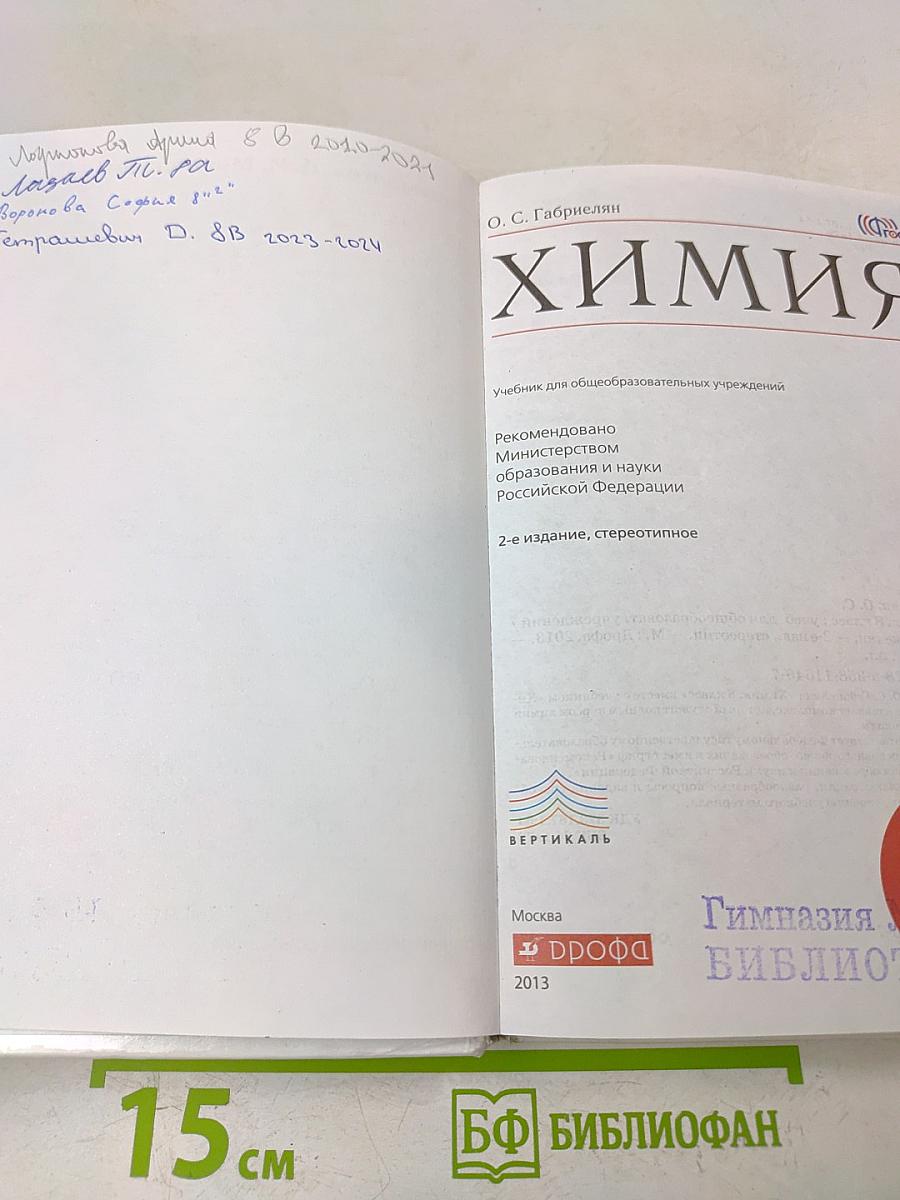 Арина 8 В 2020-2021
Т. 8а
Воронова София 8 "г"
Петрашевич Д. 8В 2023-2024
О. С. Габриелян
ХИМИЯ
Учебник для общеобразовательных учреждений
Рекомендовано
Министерством
образования и науки
Российской Федерации
2-е издание, стереотипное
ВЕРТИКАЛЬ
Москва
дрофа
2013
Гимназия
БИБЛИОТ
15 см
БФ БИБЛИОФАН